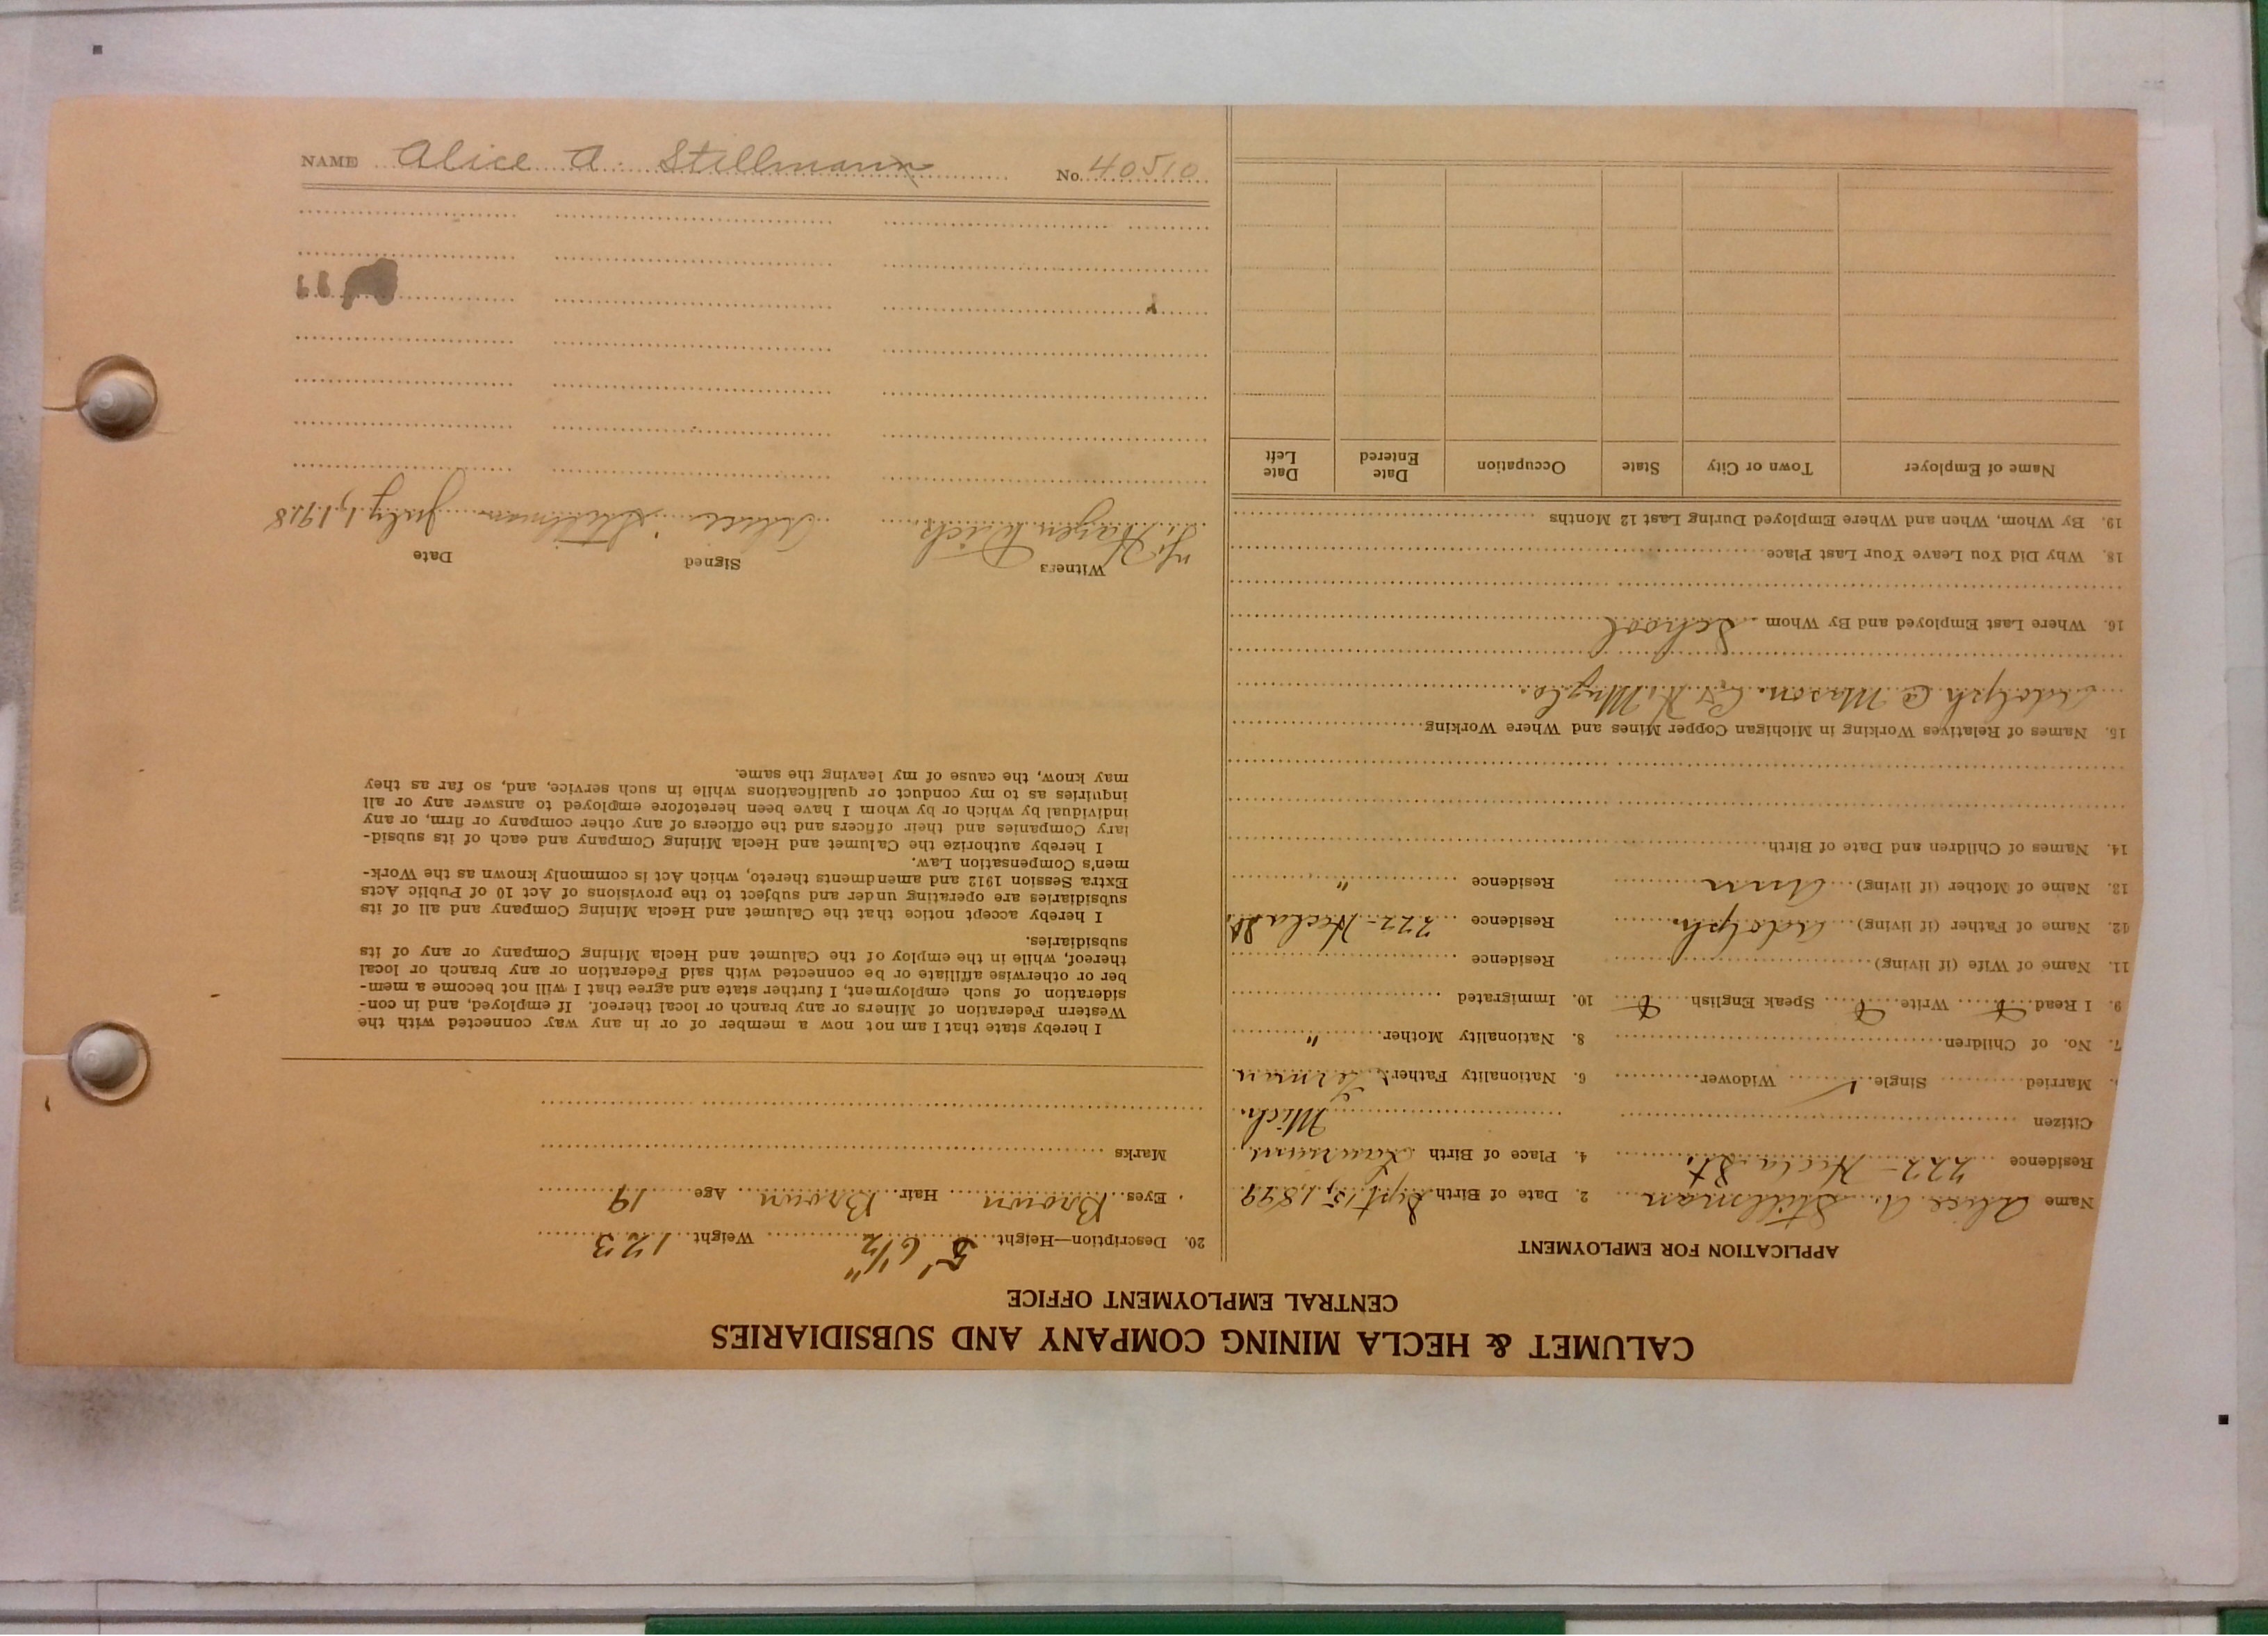 NAME Alice A. Stillman No. 40510
CALUMET & HECLA MINING COMPANY AND SUBSIDIARIES
CENTRAL EMPLOYMENT OFFICE
APPLICATION FOR EMPLOYMENT
Name Alice A. Stillman 2. Date of Birth Sept 15, 1899
Residence 222 - Hecla St. 4. Place of Birth Laurium,
Mich.
Citizen
Married Single ✓ Widower 6. Nationality Father German
7. No. of Children 8. Nationality Mother "
9. I Read Write Speak English 10. Immigrated
11. Name of Wife (if living) Residence
12. Name of Father (if living) Adolph Residence 222 - Hecla St.
13. Name of Mother (if living) Ann Residence "
14. Names of Children and Date of Birth
15. Names of Relatives Working in Michigan Copper Mines and Where Working
Adolph @ Mason C. & H. Mng Co.
16. Where Last Employed and By Whom School
18. Why Did You Leave Your Last Place
19. By Whom, When and Where Employed During Last 12 Months
Name of Employer Town or City State Occupation Date Entered Date Left
20. Description—Height 5' 6 1/2" Weight 123
Eyes Brown Hair Brown Age 19
Marks
I hereby state that I am not now a member of or in any way connected with the
Western Federation of Miners or any branch or local thereof. If employed, and in con-
sideration of such employment, I further state and agree that I will not become a mem-
ber or otherwise affiliate or be connected with said Federation or any branch or local
thereof, while in the employ of the Calumet and Hecla Mining Company or any of its
subsidiaries.
I hereby accept notice that the Calumet and Hecla Mining Company and all of its
subsidiaries are operating under and subject to the provisions of Act 10 of Public Acts
Extra Session 1912 and amendments thereto, which Act is commonly known as the Work-
men's Compensation Law.
I hereby authorize the Calumet and Hecla Mining Company and each of its subsid-
iary Companies and their officers and the officers of any other company or firm, or any
individual by which or by whom I have been heretofore employed to answer any or all
inquiries as to my conduct or qualifications while in such service, and, so far as they
may know, the cause of my leaving the same.
Witness Signed Date
Alice Stillman July 1, 1918